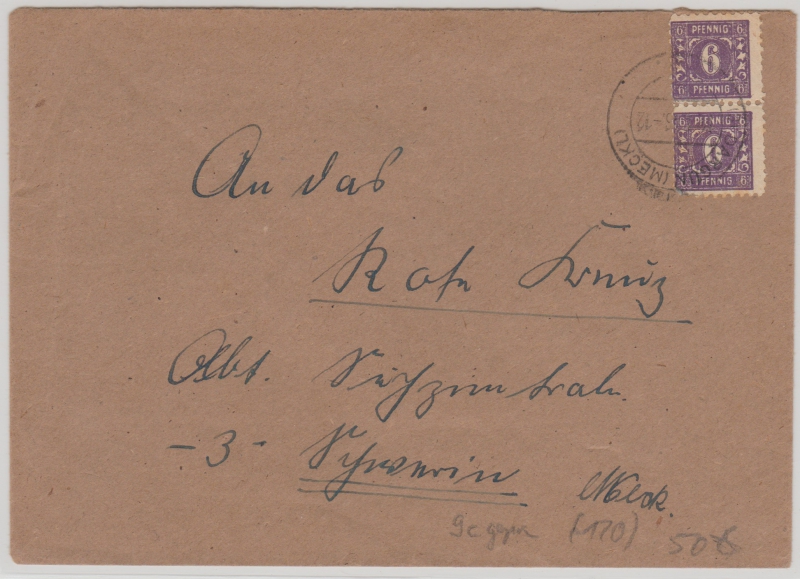 6 PFENNIG 6
6
6 PFENNIG 6
6 PFENNIG 6
6
6 PFENNIG 6
(MECKL)
An das
Rote Kreuz
Abt. Suchzentrale
- 3 - Schwerin Meck.
9c gepr. (-170) 50